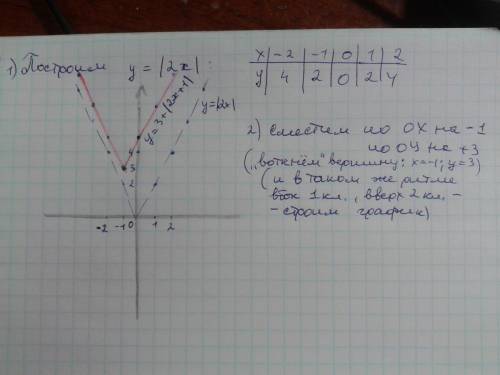 1) Построим y = |2x| :
x -2 -1 0 1 2
y 4 2 0 2 4
y=3+|2x+1|
y=|2x|
2) сместим по OX на -1
по OY на +3
("воткнём" вершину: x=-1; y=3)
(и в таком же ритме
вбок 1 кл., вверх 2 кл. -
- строим график)
4
3
2
-2 -1 0 1 2